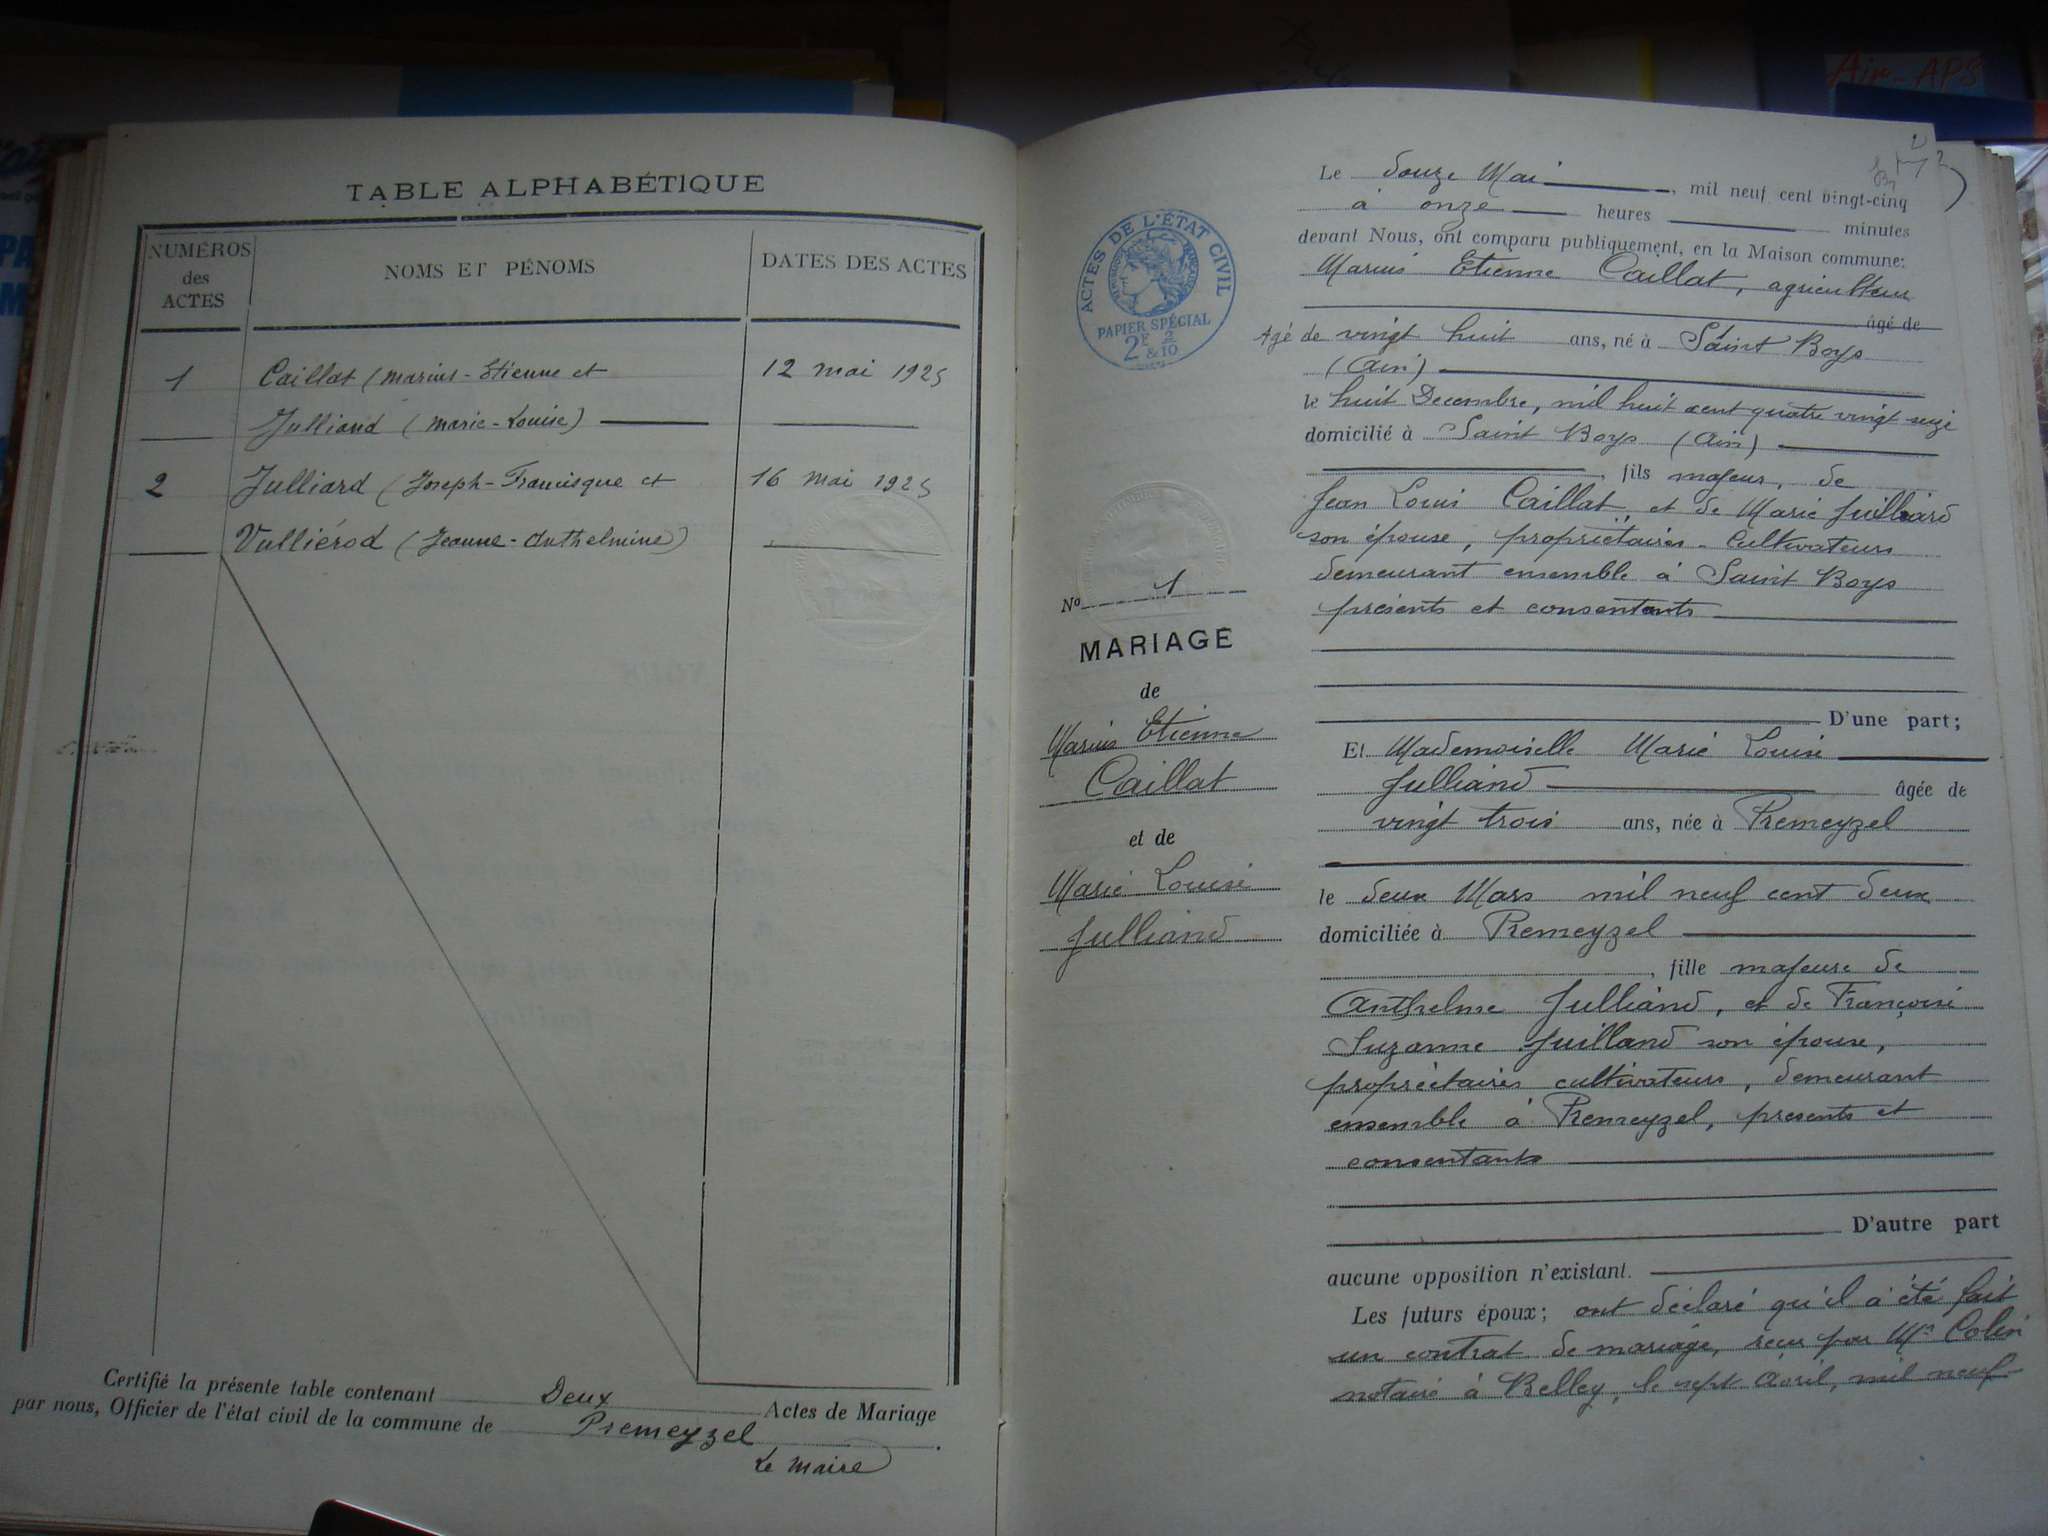 Air-APS
TABLE ALPHABÉTIQUE
NUMÉROS
des
ACTES
NOMS ET PÉNOMS
DATES DES ACTES
1
Caillat (Marius-Etienne et
12 mai 1925
Julliand (Marie-Louise)
2
Julliard (Joseph-Francisque et
16 mai 1925
Vulliérod (Jeanne-Anthelmine)
Certifié la présente table contenant Deux Actes de Mariage
par nous, Officier de l'état civil de la commune de Premeyzel.
Le Maire
ACTES DE L'ÉTAT CIVIL
PAPIER SPÉCIAL
2F 2
&10
No 1
MARIAGE
de
Marius Etienne
Caillat
et de
Marie Louise
Julliand
Le douze Mai, mil neuf cent vingt-cinq
à onze heures minutes
devant Nous, ont comparu publiquement, en la Maison commune:
Marius Etienne Caillat, agriculteur
âgé de
Agé de vingt huit ans, né à Saint Boys
(Ain)
le huit Decembre, mil huit cent quatre vingt seize
domicilié à Saint Boys (Ain)
, fils majeur, de
Jean Louis Caillat, et de Marie Juilliard
son épouse, propriétaires-cultivateurs
demeurant ensemble à Saint Boys
présents et consentants
D'une part;
Et Mademoiselle Marie Louise
Julliand âgée de
vingt trois ans, née à Premeyzel
le deux Mars mil neuf cent deux
domiciliée à Premeyzel
, fille majeure de
Anthelme Julliand, et de Françoise
Suzanne Juilland son épouse,
propriétaires cultivateurs, demeurant
ensemble à Premeyzel, presents et
consentants
D'autre part
aucune opposition n'existant.
Les futurs époux; ont déclaré qu'il a été fait
un contrat de mariage, reçu par Me Colin
notaire à Belley, le sept Avril, mil neuf